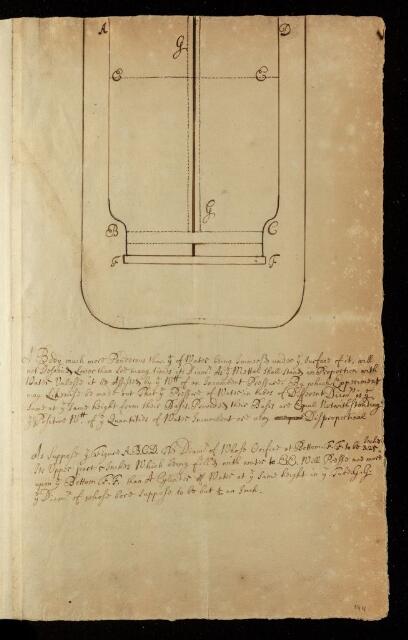 A D
G
E E
G
B C
F F
A Body much more Ponderous than yͤ of Water being Immers'd under yͤ Surface of it, will
not Descend Lower than soe many times its Diamʳ. As yͤ Mettall shall stand in Proportion with
Water Unless it be Assisted by yͤ Wᵗᵗ of an Incumbent Pressure; By which Experiment
may Likewise be made out that yͤ Pressure of Water in tubes of Different Diamʳˢ is yͤ
same at yͤ same height from their Basis, Provided their Basis are Equall Notwithstanding
yͤ Positive Wᵗᵗ of yͤ Quantities of Water Incumbent are Disproportional
As suppose yͤ Figure A.B.C.D. yͤ Diamʳ of Whose Orifice at Bottom F.F. to be Inches
Its Upper part Inches Which being filled with water to E.E. Will Presse no more
upon yͤ Bottom F.F. than A Cylinder of Water at yͤ same height in yͤ Tube G.G.
yͤ Diamʳ of whose bore suppose to be but an Inch.